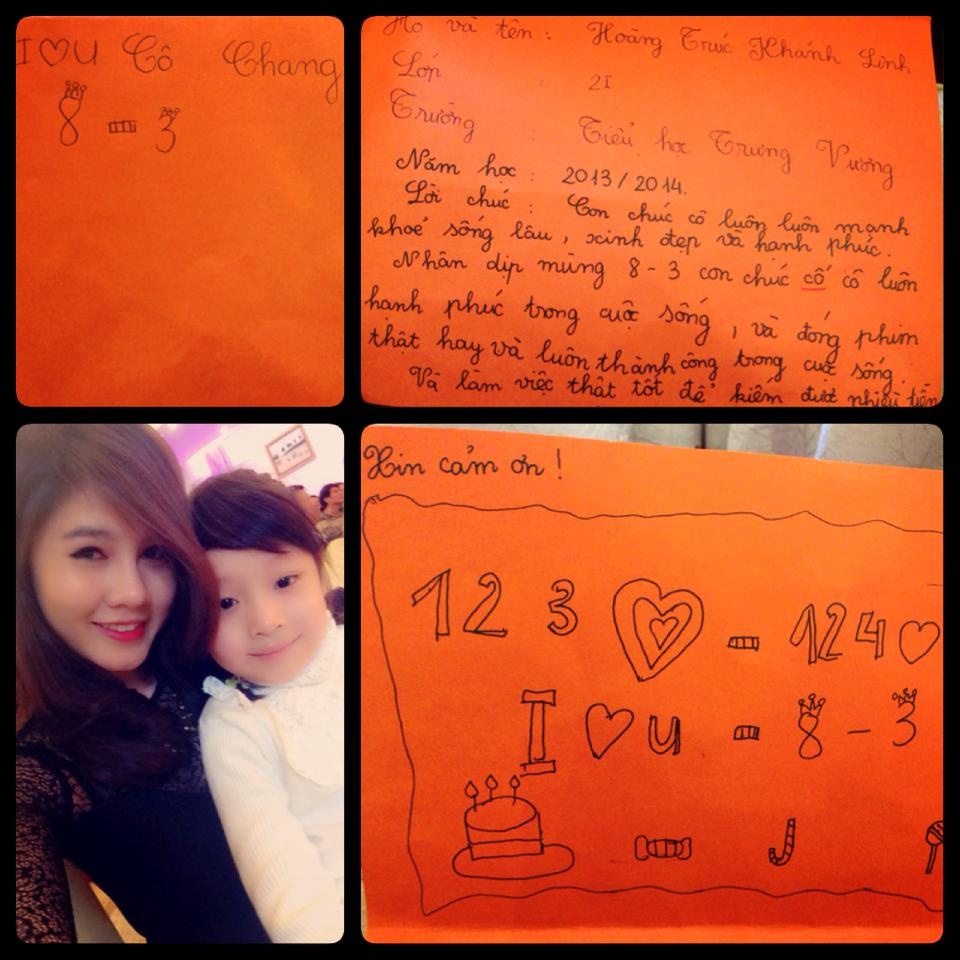 I ♡ U Cô Chang
8 - 3
Họ và tên : Hoàng Trúc Khánh Linh
Lớp : 2I
Trường : Tiểu học Trưng Vương
Năm học : 2013 / 2014.
Lời chúc : Con chúc cô luôn luôn mạnh
khoẻ sống lâu, xinh đẹp và hạnh phúc.
Nhân dịp mùng 8 - 3 con chúc cố cô luôn
hạnh phúc trong cuộc sống, và đóng phim
thật hay và luôn thành công trong cuộc sống.
Và làm việc thật tốt để kiếm được nhiều tiền
Xin cảm ơn !
12 3 ♡ - 124 ♡
I ♡ u - 8 - 3